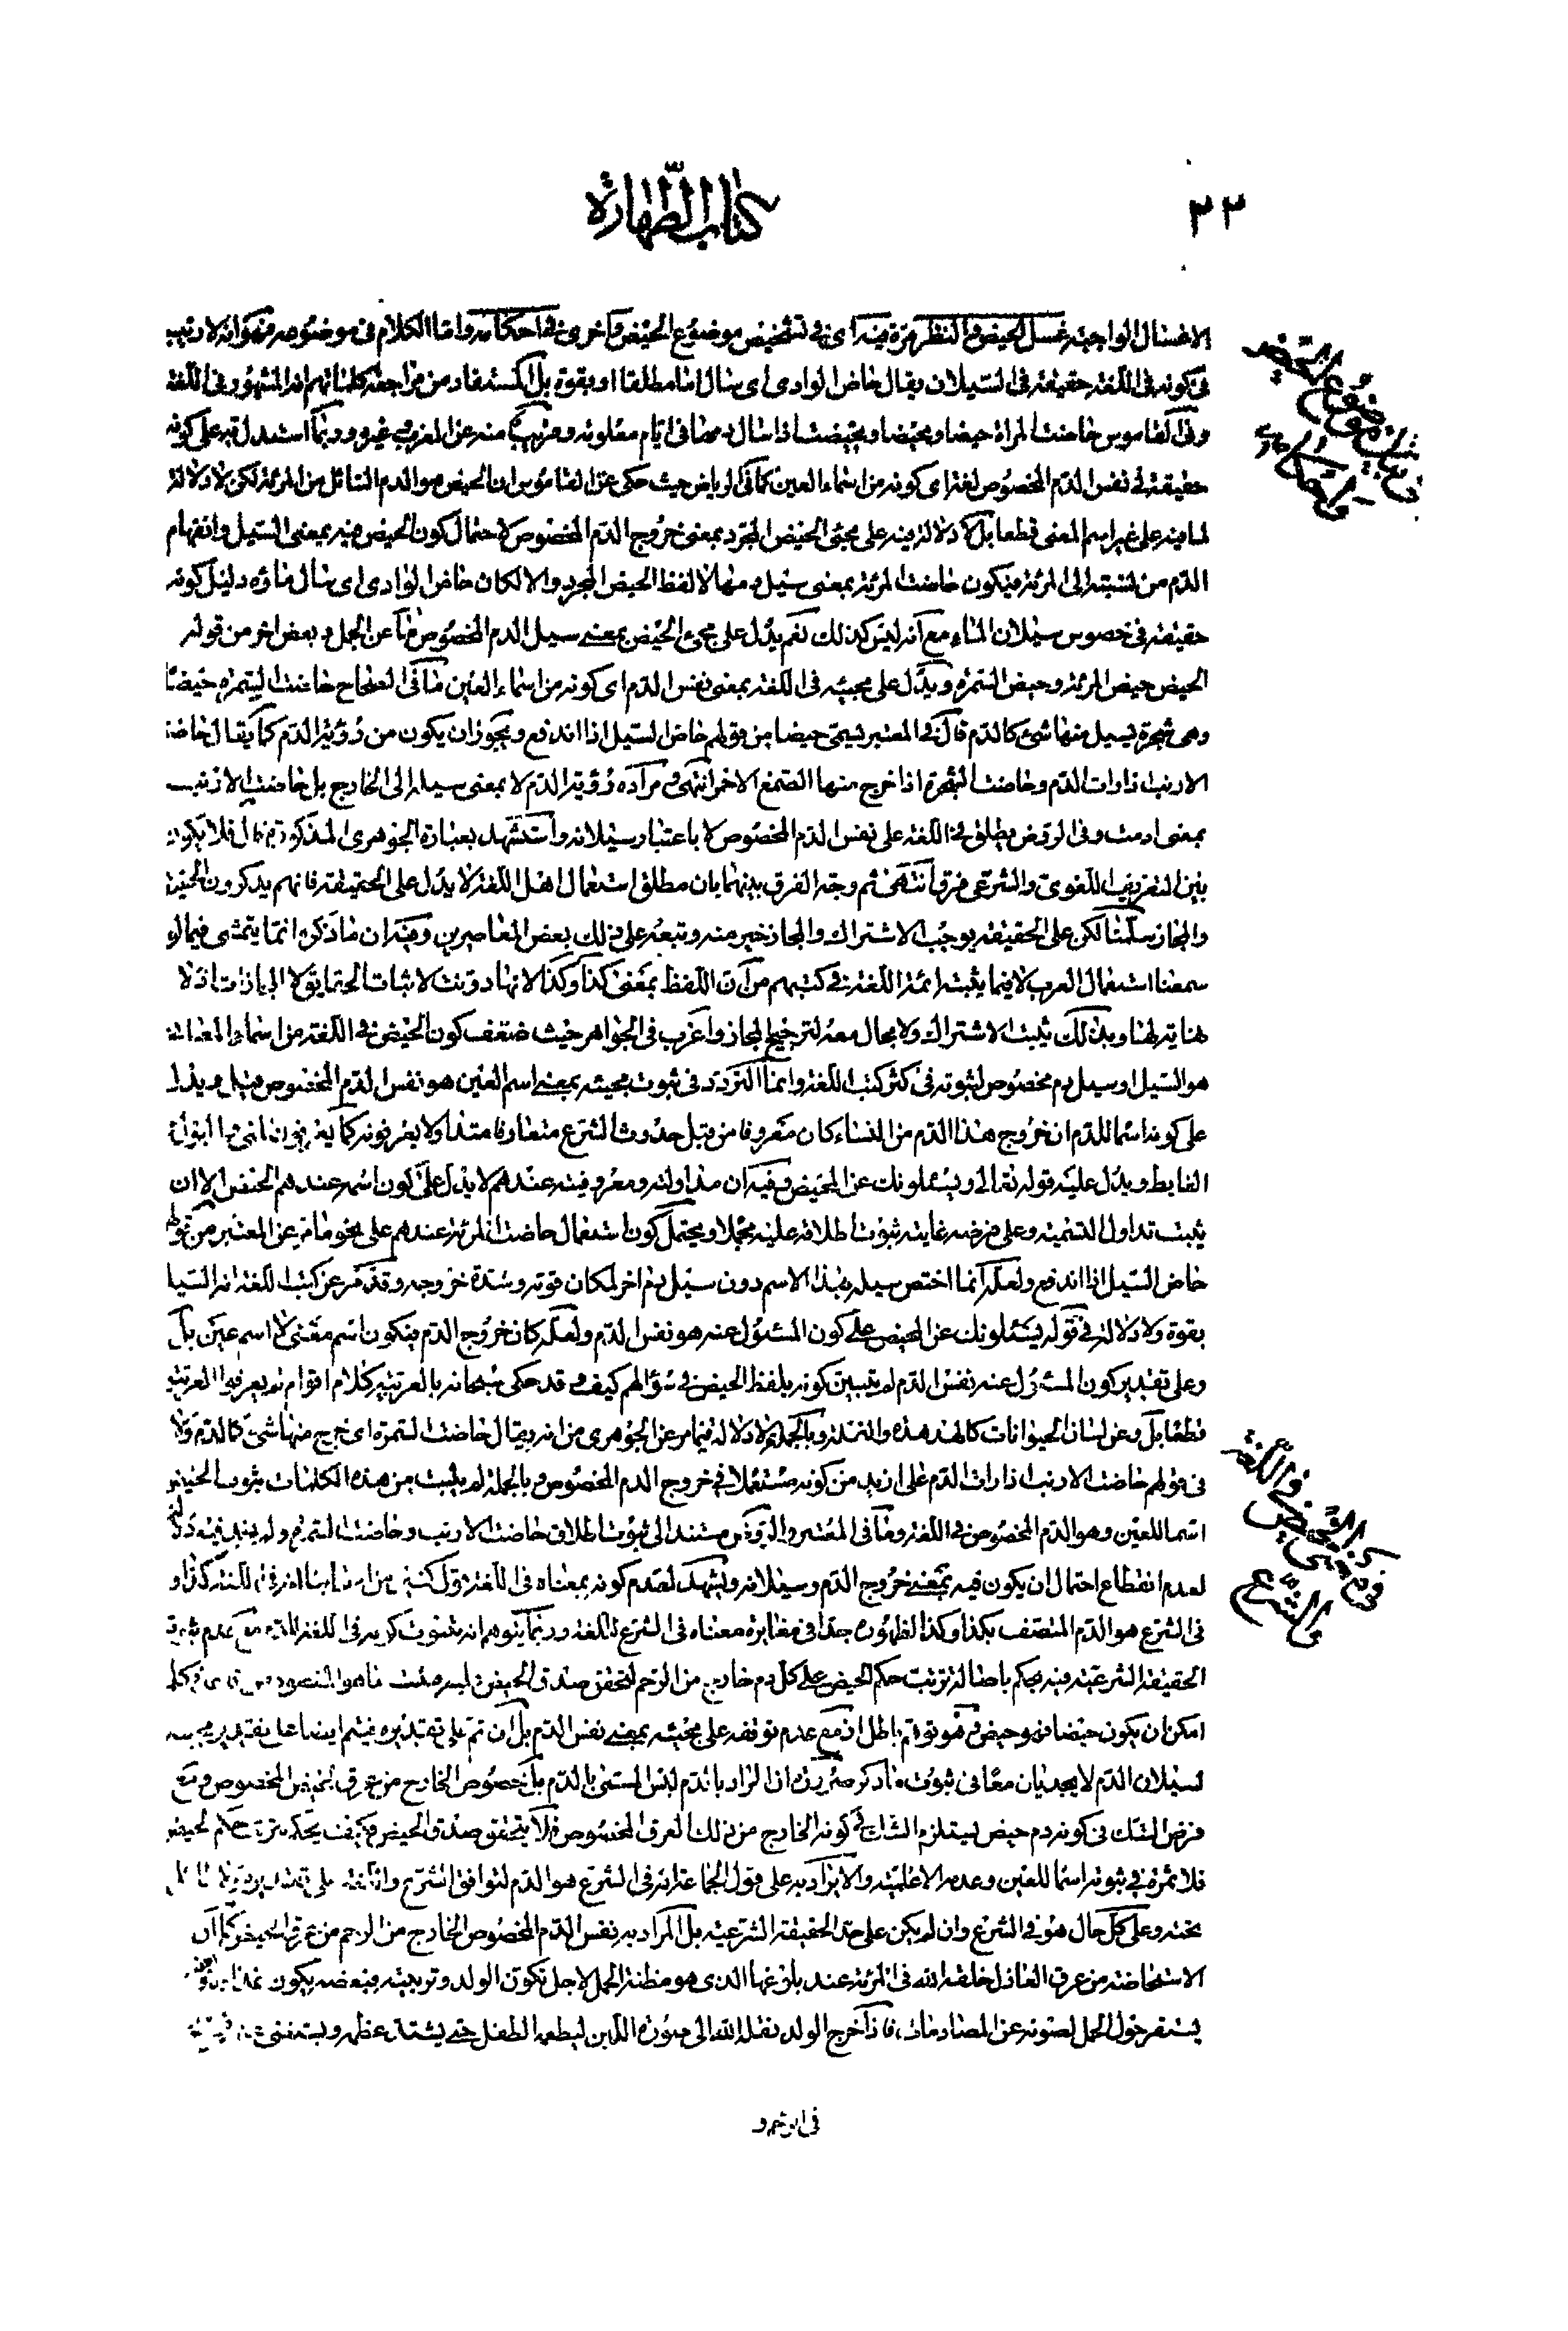 ٢٣
كتاب الطهارة
الاغسال الواجبة غسل الحيض والنظر مرة فيه اى فى تشخيص موضوع الحيض واخرى فى احكامه واما الكلام فى موضوعه فهو انه لا ريب
فى كونه فى اللغة حقيقة فى السيلان يقال حاض الوادى اى سال اما مطلقا او بقوة بل المستفاد من مراجعة كلماتهم انه المشهور فى اللغة
وفى القاموس حاضت المراة حيضا ومحيضا ومحيضت اذا سال دمها فى ايام معلومة وقريب منه عن المغرب وغيره وربما استدل به على كونه
حقيقة فى نفس الدم المخصوص لغة اى كونه من اسماء العين كما فى الرياض حيث حكى عن القاموس ان الحيض هو الدم السائل من المرئة لكن لا دلالة
لما فيه على غير اسم المعنى قطعا بل لا دلالة فيه على مجئ الحيض المجرد بمعنى خروج الدم المخصوص لاحتمال كون الحيض فيه بمعنى السيل وانفهام
الدم من نسبته الى المرئة فيكون حاضت المرئة بمعنى سيل دمها لا لفظ الحيض المجرد والا لكان حاض الوادى اى سال ماؤه دليل كونه
حقيقة فى خصوص سيلان الماء مع انه ليس كذلك نعم يدل على مجئ الحيض بمعنى سيل الدم المخصوص ما عن المجمل وبعض اخر من قوله
الحيض حيض المرئة وحيض السمرة ويدل على مجيئه فى اللغة بمعنى نفس الدم اى كونه من اسماء العين ما فى الصحاح حاضت السمرة حيضا
وهى شجرة يسيل منها شئ كالدم قال فى المعتبر يسمى حيضا من قولهم حاض السيل اذا اندفع ويجوز ان يكون من رؤية الدم كما يقال حاضت
الارنب اذا رات الدم وحاضت السمرة اذا خرج منها الصمغ الاحمر انتهى ومراده رؤية الدم لا بمعنى سيله الى الخارج بل حاضت الارنب
بمعنى ادمت وفى الروض يطلق فى اللغة على نفس الدم المخصوص لا باعتبار سيلانه واستشهد بعبارة الجوهرى المذكورة ثم قال فلا يكون
بين التعريف اللغوى والشرعى فرق انتهى ثم وجه الفرق بينهما بان مطلق استعمال اهل اللغة لا يدل على الحقيقة فانهم يذكرون الحقيقة
والمجاز سلمنا لكن على الحقيقة يوجب الاشتراك والمجاز خير منه وتبعه على ذلك بعض المعاصرين وفيه ان ما ذكره انما يتمشى فيما لو
سمعنا استعمال العرب لا فيما يثبته ائمة اللغة فى كتبهم من ان اللفظ بمعنى كذا وكذا لانها دونت لاثبات الحقايق لا المجازات اذ لا
نهاية لها وبذلك يثبت الاشتراك ولا مجال معه لترجيح المجاز واغرب فى الجواهر حيث ضعف كون الحيض فى اللغة من اسماء المعانى
هو السيل او سيل دم مخصوص لثبوته فى اكثر كتب اللغة وانما التردد فى ثبوت مجيئه بمعنى اسم العين هو نفس الدم المخصوص قيل ويدل
على كونه اسما للدم ان خروج هذا الدم من النساء كان معروفا من قبل حدوث الشرع متعارفا متداولا يعرفونه كما يعرفون المنى والبول و
الغايط ويدل عليه قوله تعالى ويسئلونك عن المحيض وفيه ان مداولته ومعروفيته عندهم لا يدل على كون اسمه عندهم الحيض الا ان
يثبت تداول التسمية وعلى فرضه غايته ثبوت اطلاقه عليه مجملا ويحتمل كون استعمال حاضت المرئة عندهم على نحو ما مر عن المعتبر من قولهم
حاض السيل اذا اندفع ولعله انما اختص سيله بهذا الاسم دون سيل دم اخر لمكان قوته وشدة خروجه وقد مر عن كتب اللغة انه السيل
بقوة ولا دلالة فى قوله يسئلونك عن المحيض على كون المسئول عنه هو نفس الدم ولعله كان خروج الدم فيكون اسم معنى لا اسم عين بل
وعلى تقدير كون المسئول عنه نفس الدم لم يتبين كونه بلفظ الحيض فى سؤالهم كيف وقد حكى سبحانه بالعربية كلام اقوام لم يعرفوا العربية
قطعا بل وعن لسان الحيوانات كالهدهد والنملة وبالجملة لا دلالة فيما مر عن الجوهرى من انه يقال حاضت السمرة اى خرج منها شئ كالدم ولا
فى قولهم حاضت الارنب اذا رات الدم على ازيد من كونه مستعملا فى خروج الدم المخصوص وبالجملة لم يثبت من هذه الكلمات ثبوت الحيض
اسما للعين وهو الدم المخصوص فى اللغة وما فى المعتبر والروض مستند الى ثبوت اطلاق حاضت الارنب وحاضت السمرة ولم يفد فيه دلالة
لعدم انقطاع احتمال ان يكون فيه بمعنى خروج الدم وسيلانه ويشهد لعدم كونه بمعناه فى اللغة قول كثير من اصحابنا انه فى اللغة كذا و
فى الشرع هو الدم المتصف بكذا وكذا لظهوره جدا فى مغايرة معناه فى الشرع للغة وربما يتوهم انه بثبوت كونه فى اللغة للدم مع عدم ثبوت
الحقيقة الشرعية فيه يحكم باصالة ترتب حكم الحيض على كل دم خارج من الرحم لتحقق صدق الحيض
امكن ان يكون حيضا فهو حيض وهو توهم باطل اذ مع عدم توقفه على مجيئه بمعنى نفس الدم بل ان تم على تقديره فيتم ايضا على تقدير مجيئه
لسيلان الدم لا يجديان معا فى ثبوت ما ذكر ضرورة ان المراد بالدم ليس المسمى بالدم بل خصوص الخارج من عرق الحيض المخصوص ومع
فرض الشك فى كونه دم حيض يستلزم الشك فى كونه الخارج من ذلك العرق المخصوص فلا يتحقق صدق الحيض فكيف يحكم بترتب حكم الحيض
فلا ثمرة فى ثبوته اسما للعين وعدمه الا علمية والايراد به على قول الجماعة انه فى الشرع هو الدم لتوافق الشرع واللغة على تقدير
وعلى كل حال هو فى الشرع وان لم يكن على حد الحقيقة الشرعية بل المراد به نفس الدم المخصوص الخارج من الرحم من عرق الحيض كما ان
الاستحاضة من عرق العاذل خلقه الله فى المرئة عند بلوغها الذى هو مظنة الحمل لاجل تكون الولد وتربيته فبعضه يكون غذاء
يستقر حول الحمل لصونه عن المصادمات فاذا خرج الولد نقله الله الى صورة اللبن ليطعمه الطفل حتى يشتد عظمه ويستغنى
فى تشخيص موضوع الحيض
كون الحيض فى اللغة
والشرع